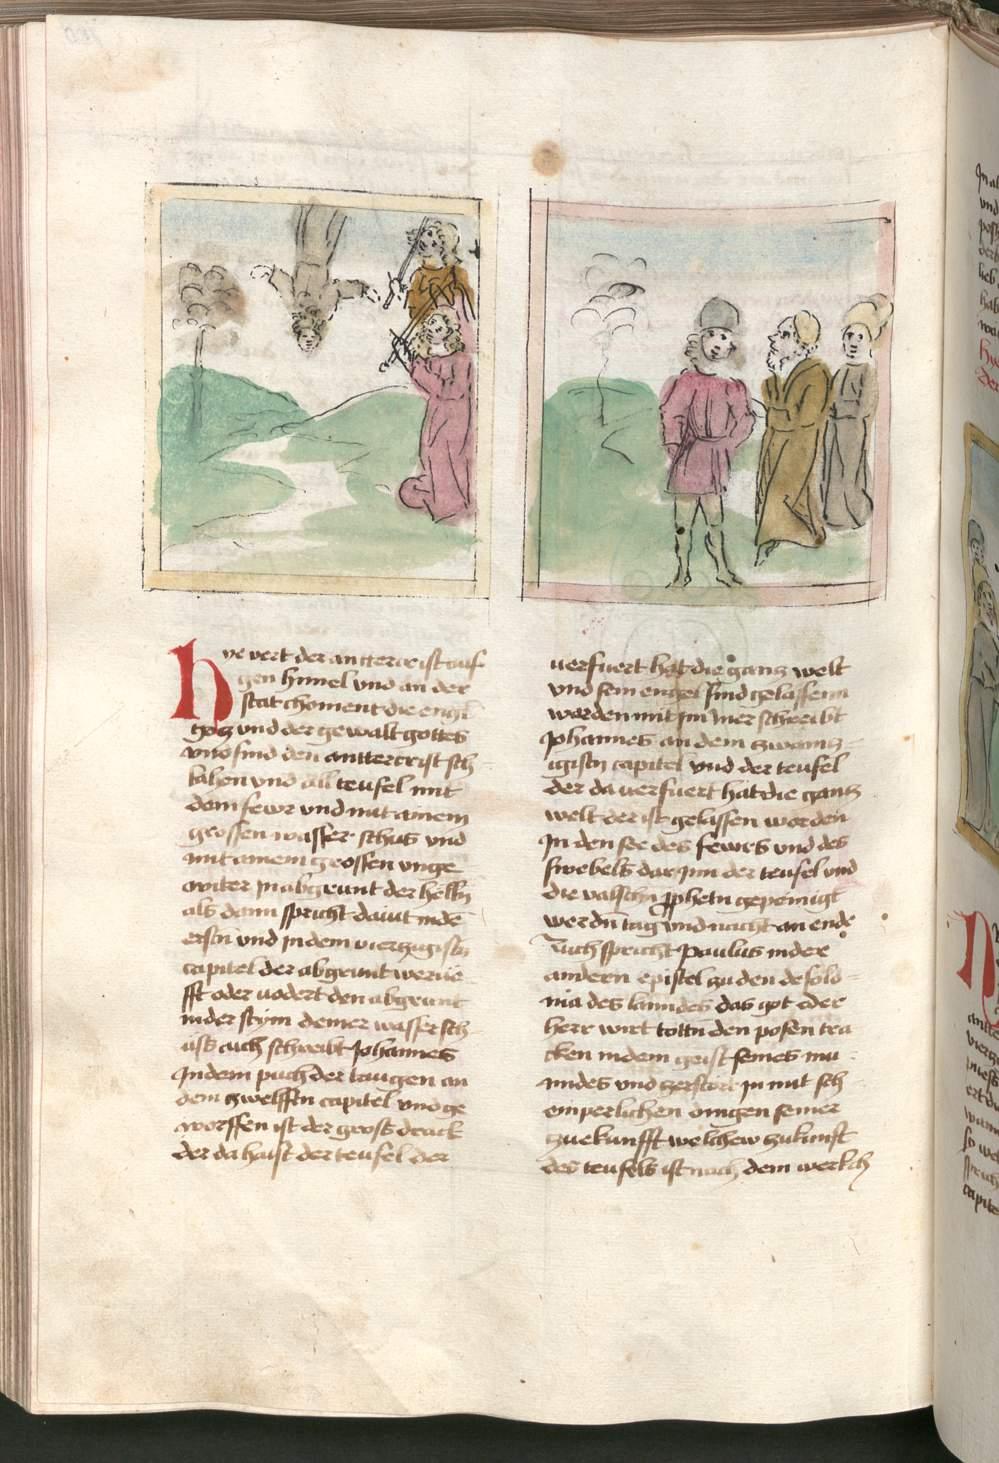 hye vert der anttercrist auf
gen himel vnd an der
stat choment die engl
gotz vnd der gewalt gottes
vnd sind den anttercrist sch
lahen vnd all teufel mit
dem fewr vnd mit ainem
grossen wasser schus vnd
mit ainem grossen vnge
witer in abgrunt der hellen
als dann spricht dauit in de
ersten vnd in dem vierzigisten
capitel der abgrunt
fft oder vodert den abgrunt
in der stym deiner wasser sch
uss auch schreibt Johannes
In dem puch der taugen an
dem zwelfften capitel vnd ge
worffen ist der gross drack
der da haist der teufel der
uerfuert hat die gantz welt
vnd sein engel sind gelassenn
warden mit im mer schreibt
Johannes an dem zwaintz
igisten capitel vnd der teufel
der da uerfuert hat die gantz
welt der ist gelassen worden
In den see des fewrs vnd des
swebels dar Inn der teufel vnd
die valschen ppheten gepeinigt
werdn tag vnd nacht an ende
Auch spricht Paulus in der
andern epistel zu den desolo
nia des lanndes das got oder
herr wirt tottn den posen tra
cken in dem geist seines mu
ndes vnd zerstort in mit sch
einperlichen dingen seiner
zuekunfft welchew zukunft
des teufels ist nach dem werkch